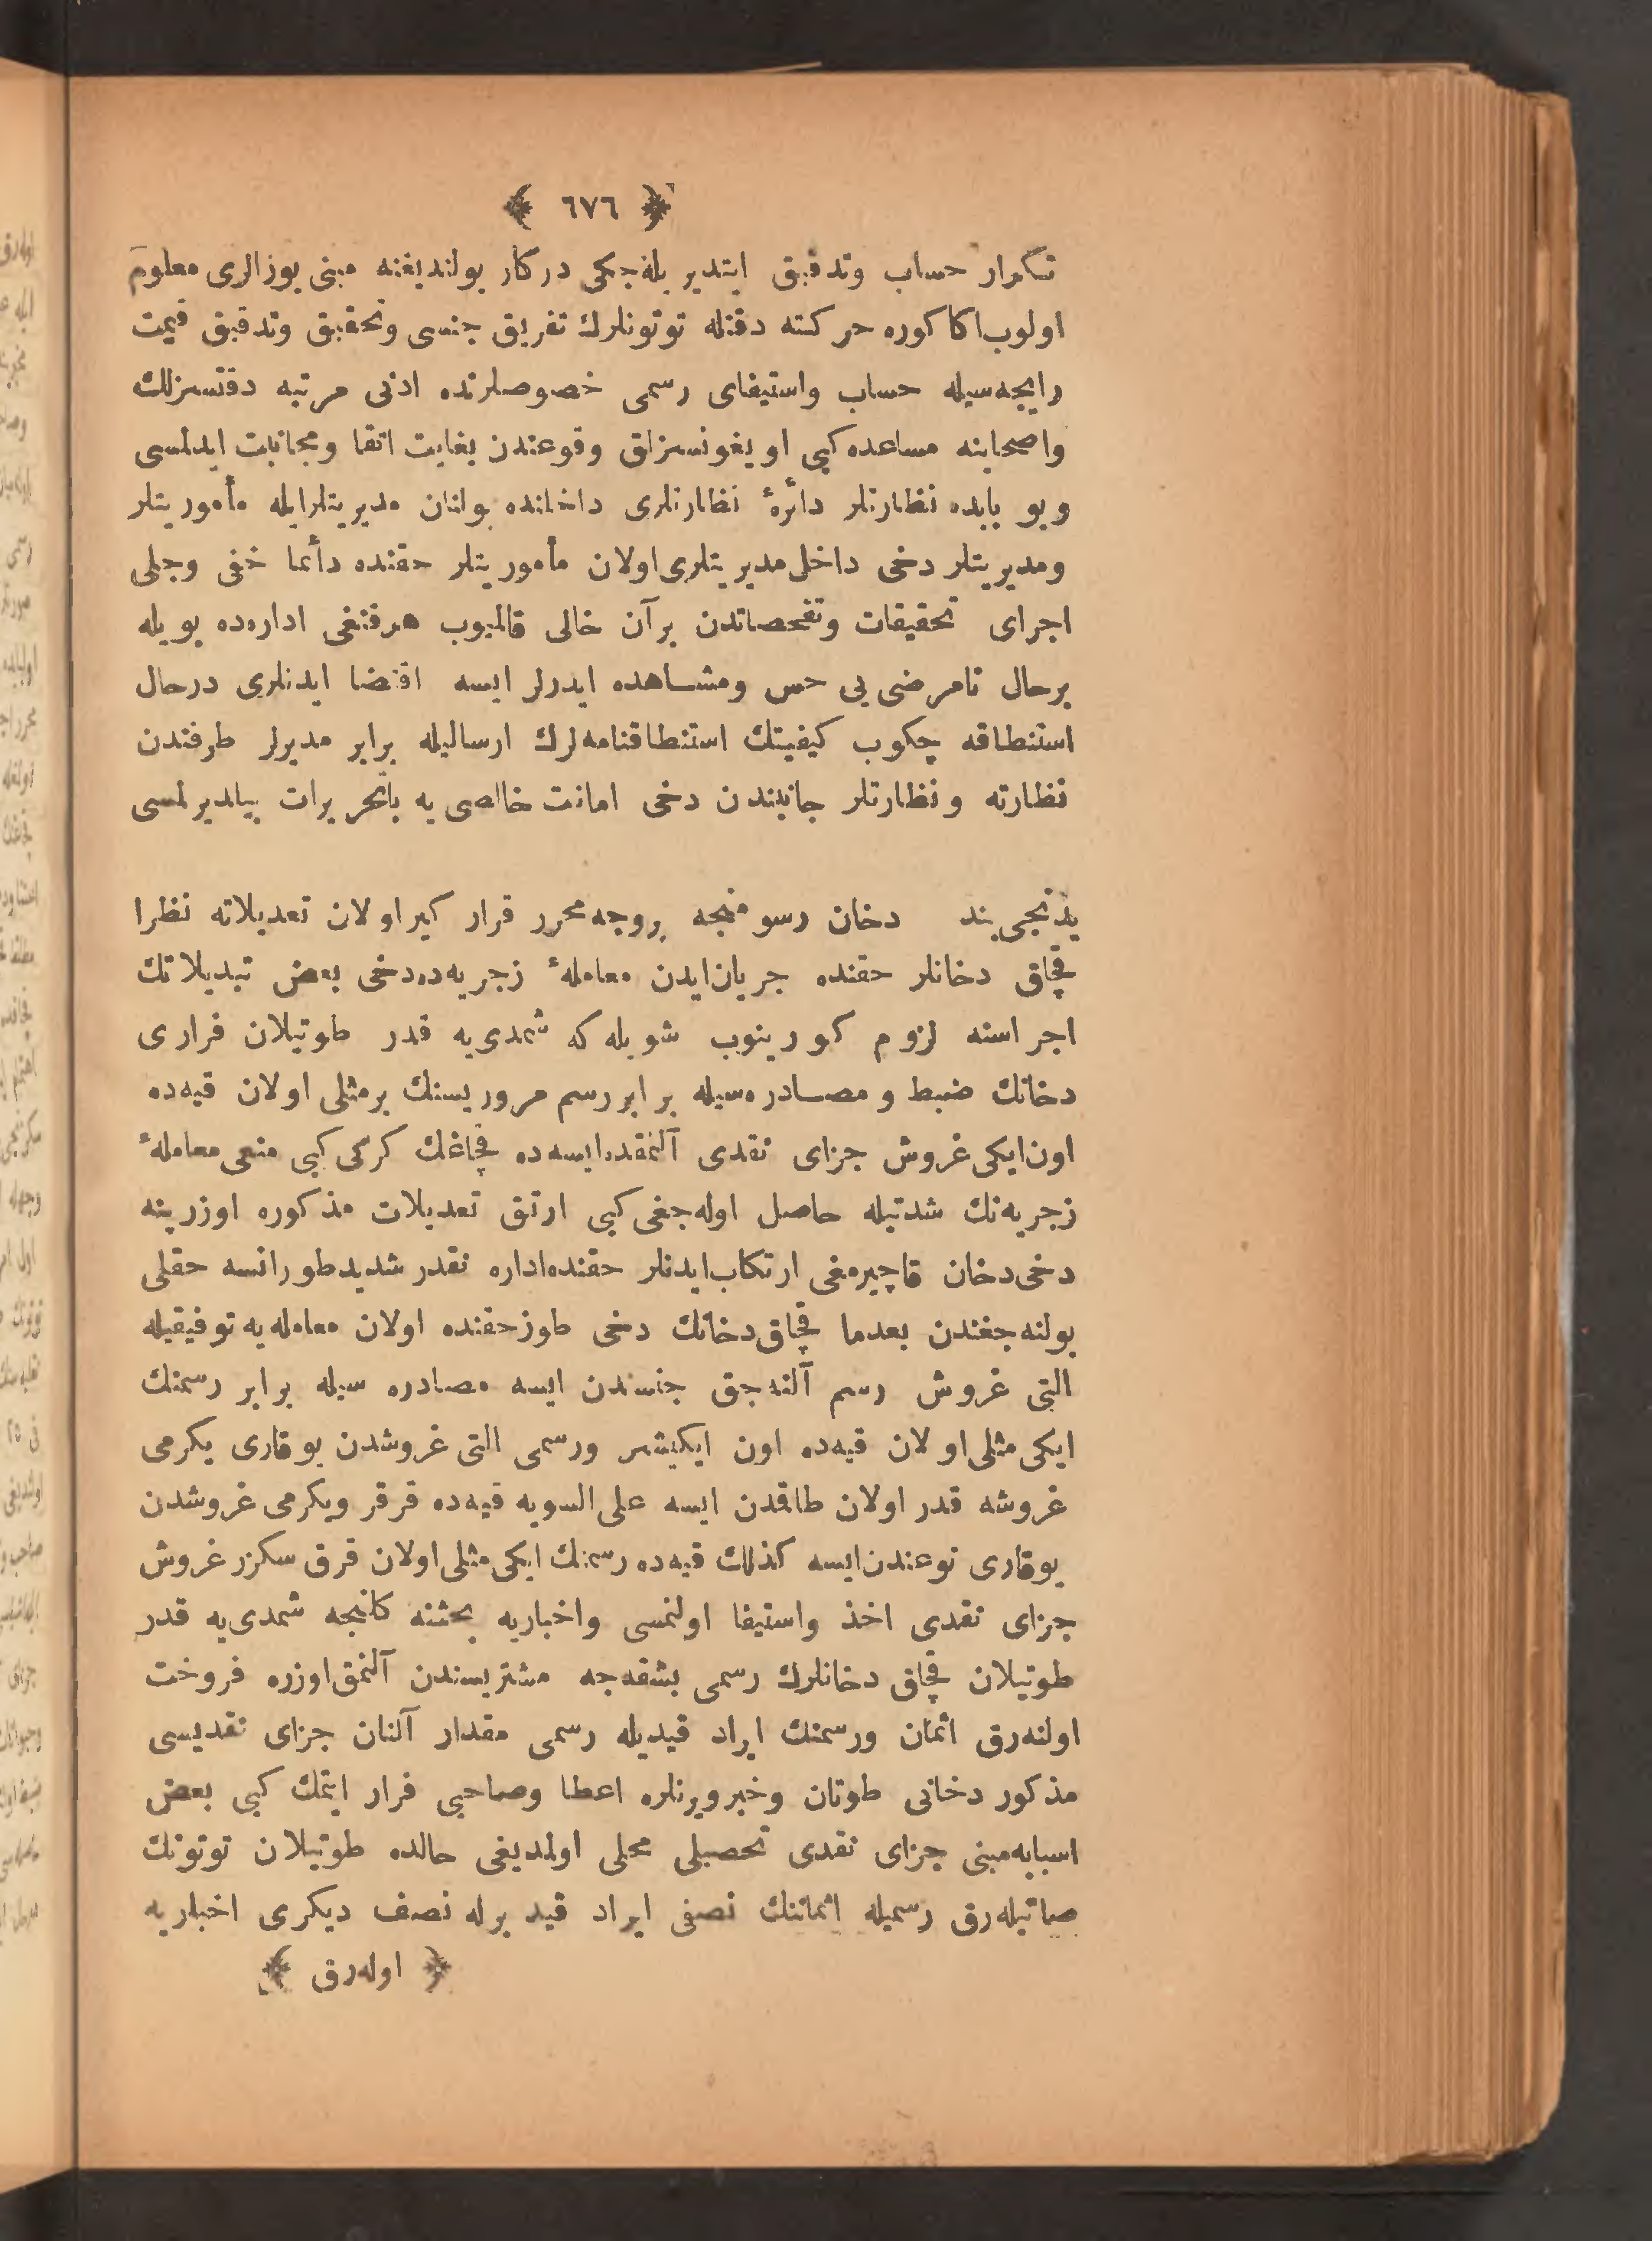 ﴿ ٦٧٦ ﴾
تكرار حساب وتدقيق ايتديريله‌جكى دركار بولنديغنه مبنى بوزالرى معلوم
اولوب اكا كوره حركته دقتله توتونلرك تفريق جنسى وتحقيق وتدقيق قيمت
رايجه‌سيله حساب واستيفاى رسمى خصوصلرنده ادنى مرتبه دقتسزلك
واصحابنه مساعده كبى اويغونسزلق وقوعندن بغايت اتقا ومجانبت ايدلمسى
وبو بابده نظارتلر دائرۀ نظارتلرى داخلنده بولنان مديريتلرايله مأموريتلر
ومديريتلر دخى داخل مديريتلرى اولان مأموريتلر حقنده دأئما خفى وجلى
اجراى تحقيقات وتفحصاتدن برآن خالى قالميوب هرقنغى اداره‌ده بويله
برحال نامرضى يى حس ومشاهده ايدرلر ايسه اقتضا ايدنلرى درحال
استنطاقه چكوب كيفيتك استنطاقنامه‌لرك ارساليله برابر مديرلر طرفندن
نظارته ونظارتلر جانبندن دخى امانت خالصى يه باتحريرات بيلديرلمسى
يدنجى بند دخان رسومنجه بروجه محرر قرار كيراولان تعديلاته نظرا
قچاق دخانلر حقنده جريان ايدن معاملۀ زجريه‌ده‌دخى بعض تبديلاتك
اجراسنه لزوم كورينوب شويله كه شمدى‌يه قدر طوتيلان فرارى
دخانك ضبط ومصادره‌سيله برابر رسم مروريسنك برمثلى اولان قيه‌ده
اون ايكى غروش جزاى نقدى آلنمقده ايسه‌ده قچاغك كركى كبى منعى معاملۀ
زجريه‌نك شدتيله حاصل اوله‌جغى كبى ارتق تعديلات مذكوره اوزرينه
دخى دخان قاچيرمغى ارتكاب ايدنلر حقنده اداره نقدر شديد طورانسه حقلى
بولنه‌جغندن بعدما قچاق دخانك دخى طوز حقنده اولان معامله‌يه توفيقيله
التى غروش رسم آلنه‌جق جنسندن ايسه مصادره سيله برابر رسمنك
ايكى مثلى اولان قيه‌ده اون ايكيشر ورسمى التى غروشدن يوقارى يكرمى
غروشه قدر اولان طاقدن ايسه على السويه قيه‌ده قرقر ويكرمى غروشدن
يوقارى نوعندن ايسه كذلك قيه‌ده رسمنك ايكى مثلى اولان قرق سكزر غروش
جزاى نقدى اخذ واستيفا اولنمسى واخباريه بحثنه كلنجه شمدى‌يه قدر
طوتيلان قچاق دخانلرك رسمى بشقه‌جه مشتريسندن آلنمق اوزره فروخت
اولنه‌رق اثمان ورسمنك ايراد قيديله رسمى مقدار آلنان جزاى نقديسى
مذكور دخانى طوتان وخبرويرنلره اعطا وصاحبى فرار ايتمك كبى بعض
اسبابه‌مبنى جزاى نقدى تحصيلى محلى اولمديغى حالده طوتيلان توتونك
صاتيله‌رق رسميله اثماننك نصفى ايراد قيد برله نصف ديكرى اخباريه
﴿ اوله‌رق ﴾